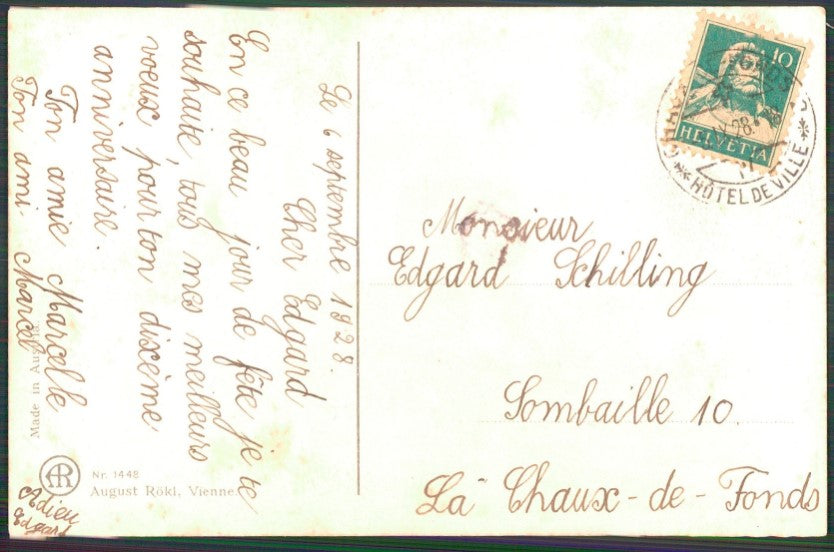 Le 6 septembre 1928.
Cher Edgard
En ce beau jour de fête je te
souhaite, tous mes meilleurs
voeux, pour ton dixème
anniversaire.
Ton amie Marcelle
Ton ami Marcel
Adieu
Edgard
Made in Austria.
Nr. 1448
August Rökl, Vienne.
10
HELVETIA
IX.28.
* HÔTEL DE VILLE *
Monsieur
Edgard Schilling
Sombaille 10.
La Chaux-de-Fonds